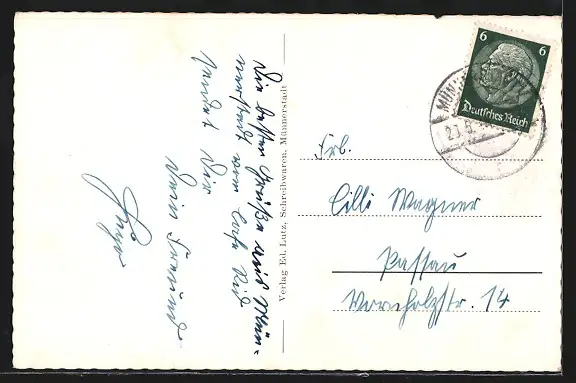 Die besten Grüße aus Mün=
nerstadt vom
sendet Dir
Dein Freund
Verlag Ed. Lutz, Schreibwaren, Münnerstadt
6 6
Deutsches Reich
MÜN
Frl.
Cilli Wagner
Passau
Vornholzstr. 14